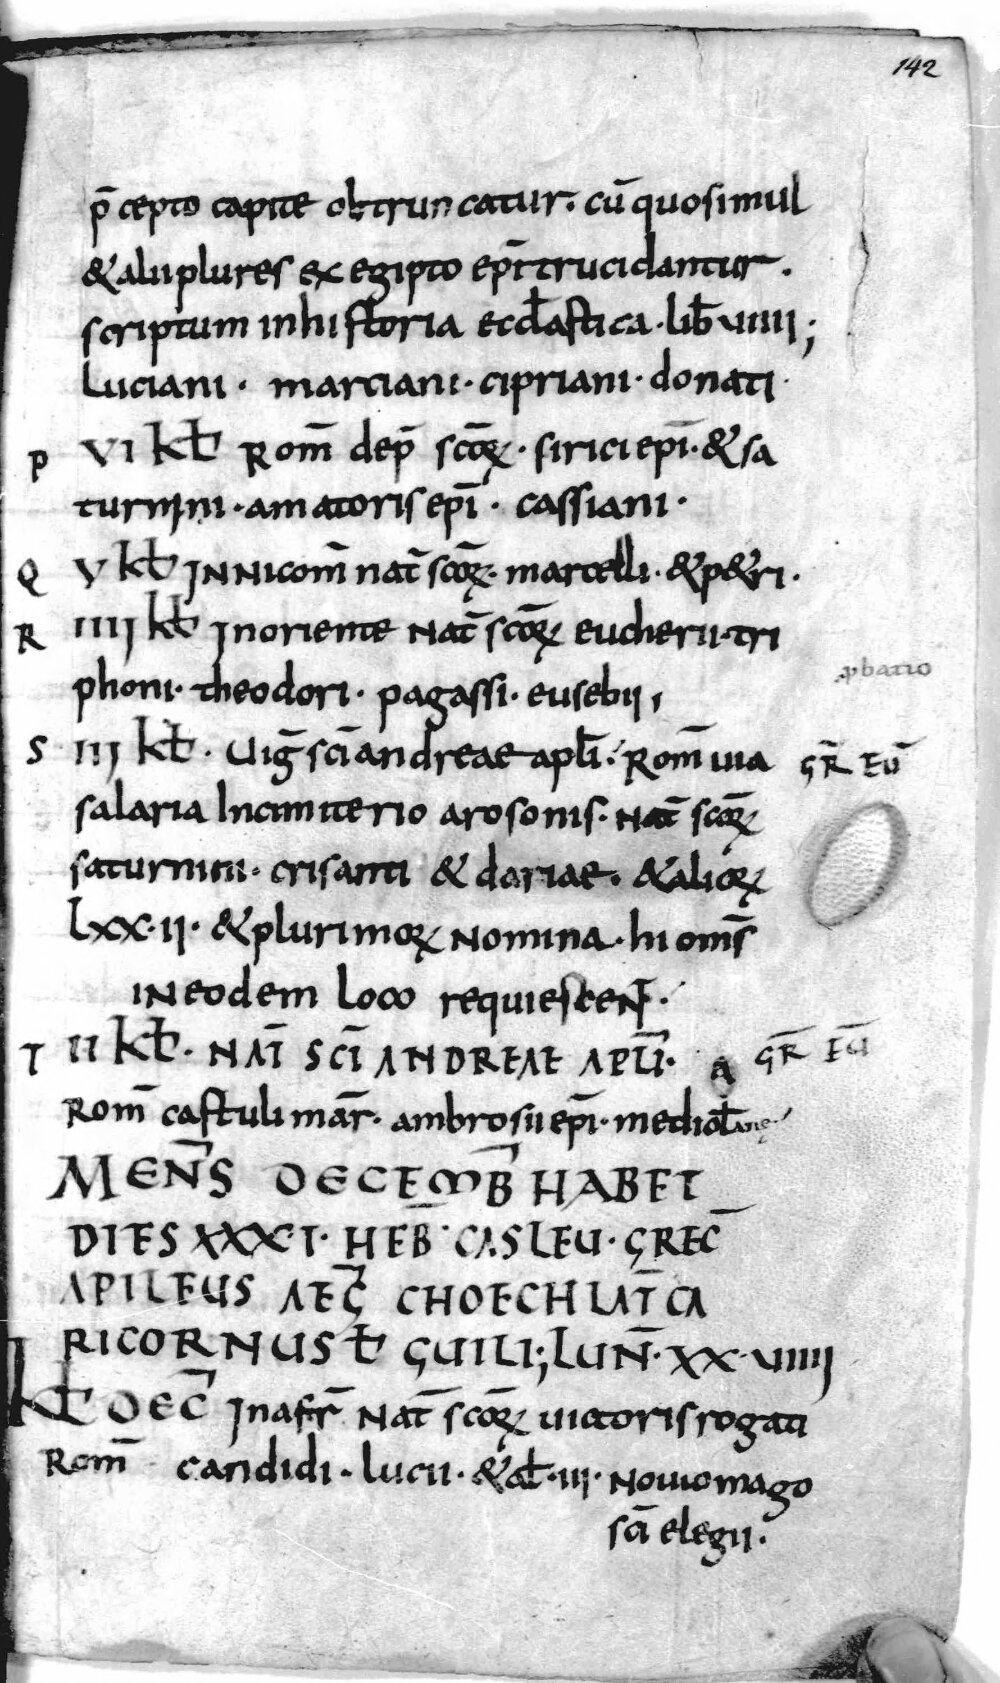 142
p̄cepto capite obtruncatur. cū quo simul
& alii plures ex egipto ep̄i trucidantur.
scriptum in historia eccl̄astica. lib̄ viiii;
Luciani. marciani. cipriani. donati.
P VI kł Rom̄ dep̄ sc̄oꝝ. sirici ep̄i. & sa
turnini. amatoris ep̄i. cassiani.
Q V kł IN Nicom̄ nat̄ sc̄oꝝ. marcelli. & p&ri.
R IIII kł In oriente Nat̄ sc̄oꝝ eucherii. tri
phoni. theodori. pagassi. eusebii,
ꝓbatio
S III kł. Uig̅ sc̄i andreae apl̄i. Rom̄ uia GR̄ EŪ
salaria In cimiterio arosonis. Nat̄ sc̄oꝝ
saturnini. crisanti & dariae. & alioꝝ
lxx.ii. & plurimoꝝ Nomina. hi om̄s
IN eodem loco requiescen̄t.
T II kł. NAT̄ SC̄I ANDREAE APL̄I. a GR̄ EŪ
Rom̄ castuli mar̄. ambrosii ep̄i. mediol̄ane
MEN̄S DECEMB̄ HABET
DIES XXX.I. HEB̄. CASLEU. GREC̄
APILEUS AEḠ CHOECH LAT̄ CA
RICORNUS ł GUILI; LUN̄. XX.VIIII
Kł DEC̄ In afr̄ Nat̄ sc̄oꝝ uictoris rogati
Rom̄ candidi. lucii. & ał. iii. Nouiomago
sc̄i elegii.